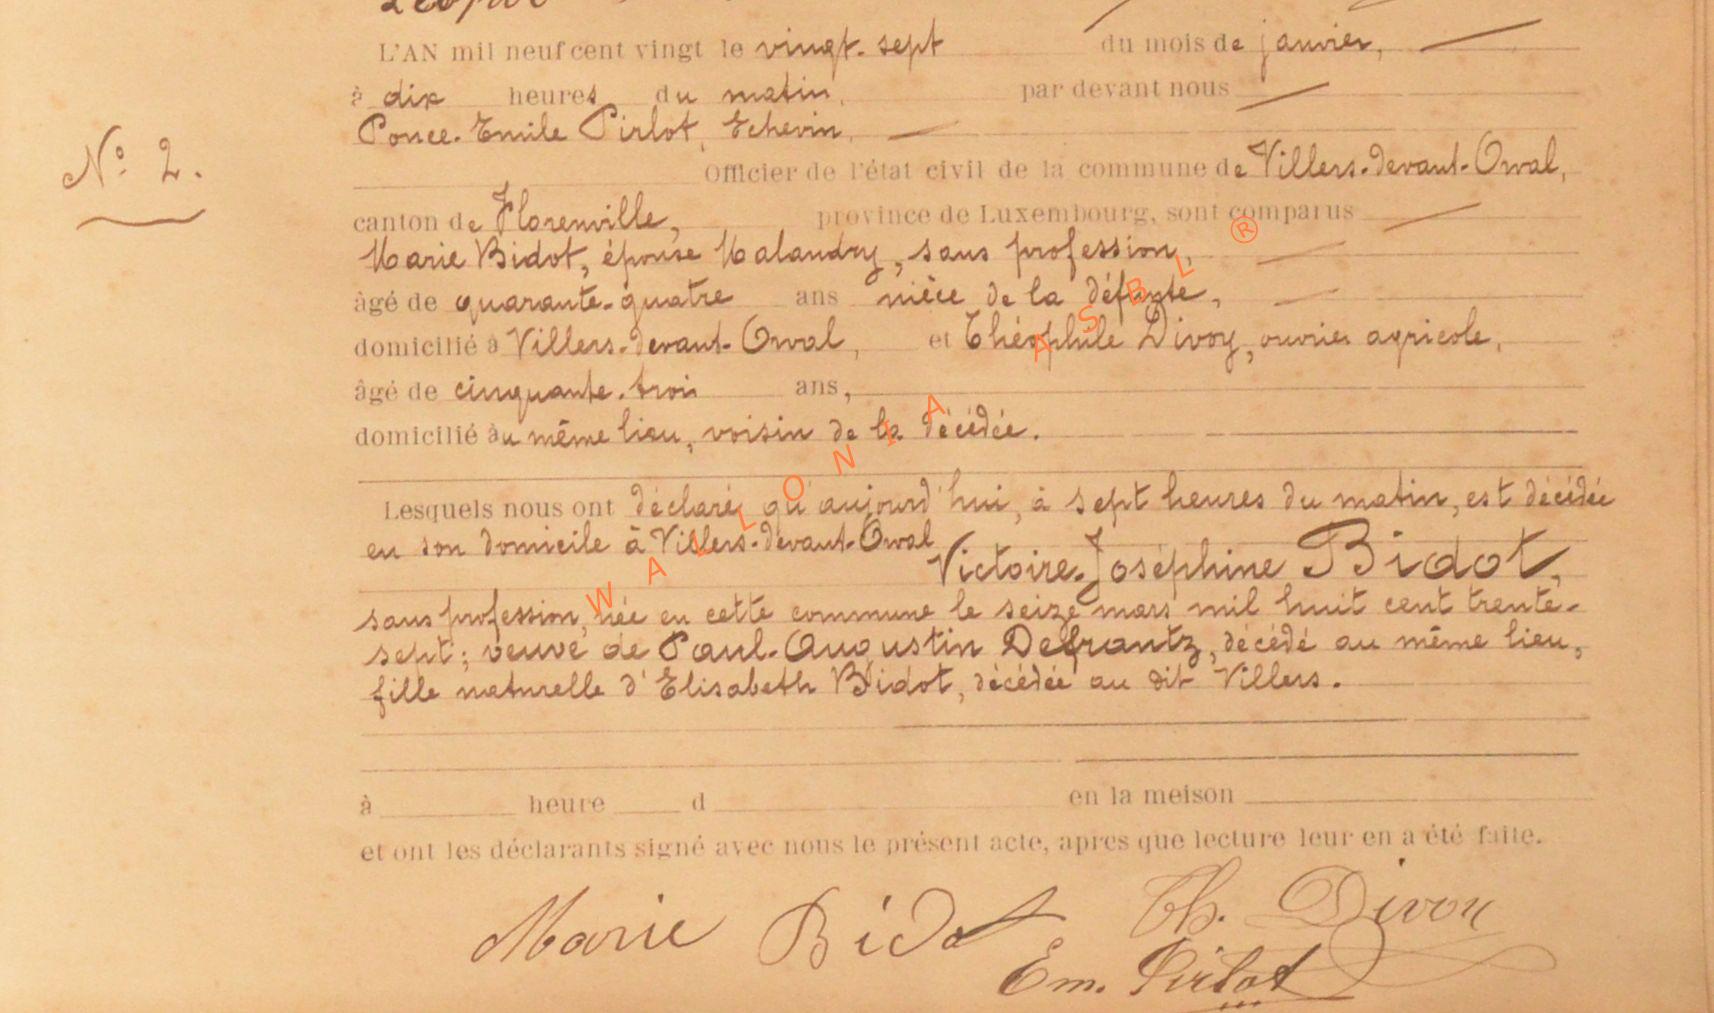 L'AN mil neuf cent vingt le vingt-sept du mois de janvier,
à dix heures du matin, par devant nous
Ponce-Emile Pirlot, Echevin,
N° 2.
Officier de l'état civil de la commune de Villers-devant-Orval,
canton de Florenville, province de Luxembourg, sont comparus
Marie Bidot, épouse Malandry, sans profession,
âgé de quarante-quatre ans nièce de la défunte,
domicilié à Villers-devant-Orval, et Théophile Divoy, ouvrier agricole,
âgé de cinquante-trois ans,
domicilié au même lieu, voisin de la décédée.
Lesquels nous ont déclaré qu'aujourd'hui, à sept heures du matin, est décédée
en son domicile à Villers-devant-Orval
Victoire-Joséphine Bidot,
sans profession, née en cette commune le seize mars mil huit cent trente-
sept; veuve de Paul-Augustin Defrantz, décédé au même lieu,
fille naturelle d'Elisabeth Bidot, décédée au dit Villers.
à heure d en la meison
et ont les déclarants signé avec nous le présent acte, apres que lecture leur en a été faite.
Marie Bidot Th. Divoy
Em. Pirlot
WALLONIA ASBL ®